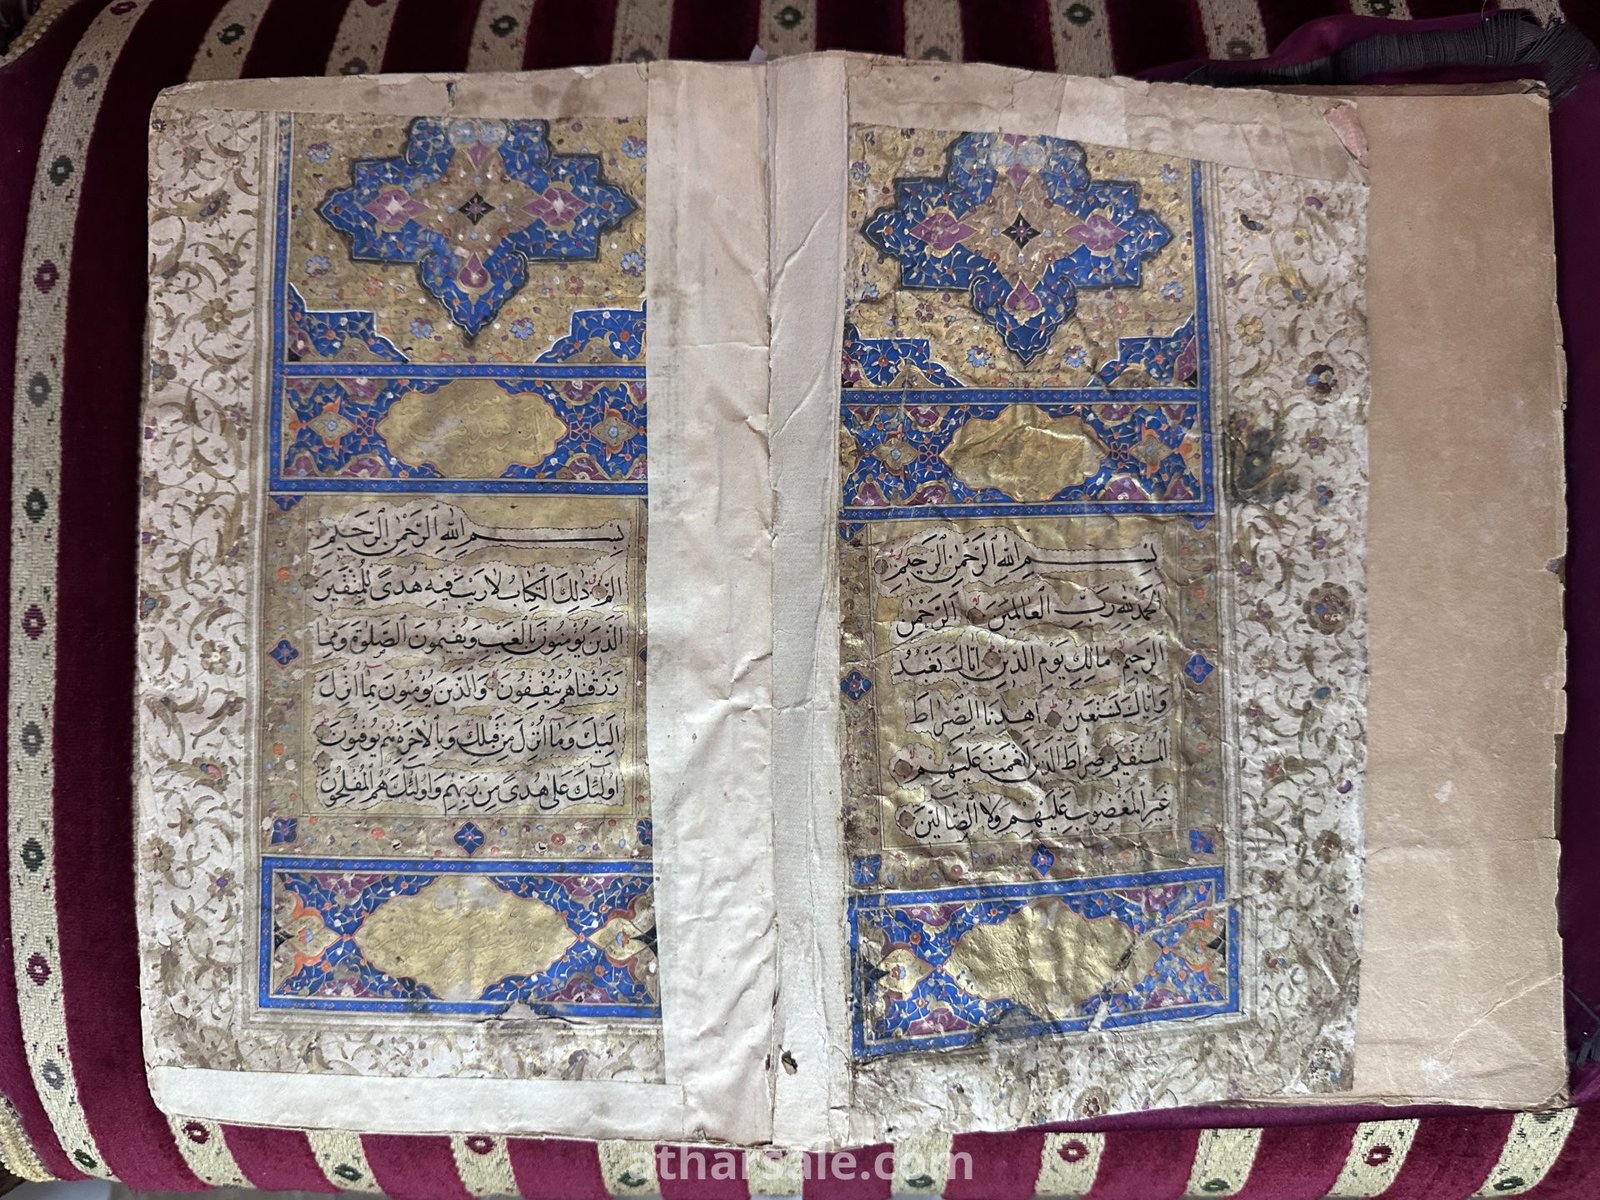 بِسْمِ اللهِ الرَّحْمٰنِ الرَّحِيمِ
الْحَمْدُ لِلّٰهِ رَبِّ الْعَالَمِينَ الرَّحْمٰنِ
الرَّحِيمِ مَالِكِ يَوْمِ الدِّينِ اِيَّاكَ نَعْبُدُ
وَاِيَّاكَ نَسْتَعِينُ اِهْدِنَا الصِّرَاطَ
الْمُسْتَقِيمَ صِرَاطَ الَّذِينَ اَنْعَمْتَ عَلَيْهِمْ
غَيْرِ الْمَغْضُوبِ عَلَيْهِمْ وَلَا الضَّالِّينَ
بِسْمِ اللهِ الرَّحْمٰنِ الرَّحِيمِ
الم ذٰلِكَ الْكِتَابُ لَا رَيْبَ فِيهِ هُدًى لِلْمُتَّقِينَ
الَّذِينَ يُؤْمِنُونَ بِالْغَيْبِ وَيُقِيمُونَ الصَّلٰوةَ وَمِمَّا
رَزَقْنَاهُمْ يُنْفِقُونَ وَالَّذِينَ يُؤْمِنُونَ بِمَا اُنْزِلَ
اِلَيْكَ وَمَا اُنْزِلَ مِنْ قَبْلِكَ وَبِالْاٰخِرَةِ هُمْ يُوقِنُونَ
اُولٰئِكَ عَلٰى هُدًى مِنْ رَبِّهِمْ وَاُولٰئِكَ هُمُ الْمُفْلِحُونَ
atharsale.com